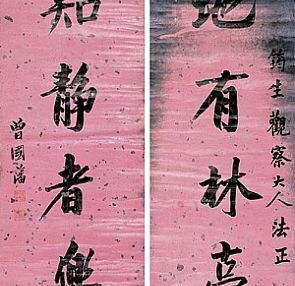 筠生觀察大人法正
地有林亭
知靜者
曾國藩